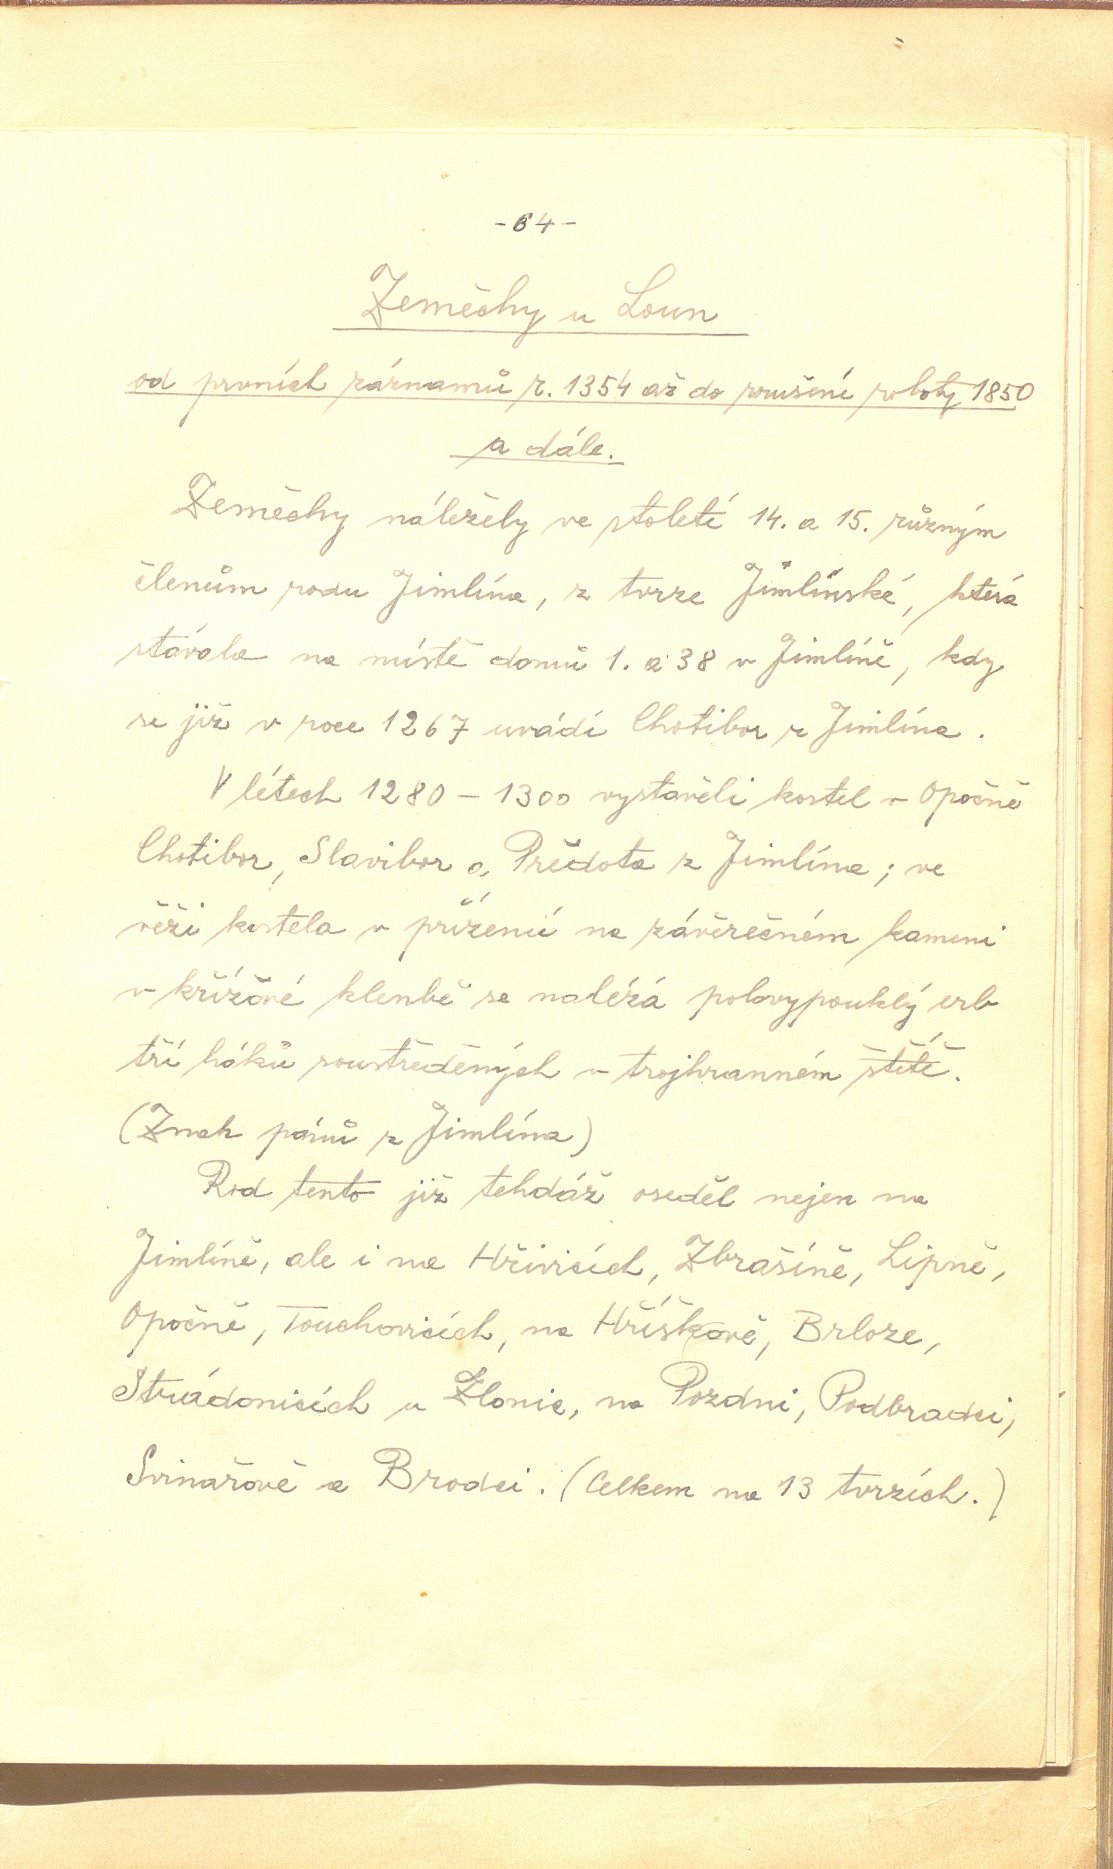 - 64 -
Zeměchy u Loun
od prvních záznamů r. 1354 až do zrušení roboty 1850
a dále.
Zeměchy náležely ve století 14. a 15. různým
členům rodu Jimlína, z tvrze Jimlínské, která
stávala na místě domů 1. a 38 v Jimlíně, kdy
se již v roce 1267 uvádí Chotibor z Jimlína.
V létech 1280 - 1300 vystavěli kostel v Opočně
Chotibor, Slavibor a Předota z Jimlína; ve
věži kostela v přízemí na závěrečném kameni
v křížové klenbě se nalézá polovypouklý erb
tří háků soustředěných v trojhranném štítě.
(Znak pánů z Jimlína)
Rod tento již tehdáž oseděl nejen na
Jimlíně, ale i na Hřivicích, Zbrašíně, Lipně,
Opočně, Touchovicích, na Hříškově, Brloze,
Strádonicích u Zlonic, na Pozdni, Podbradci,
Svinařově a Brodci. (Celkem na 13 tvrzích.)